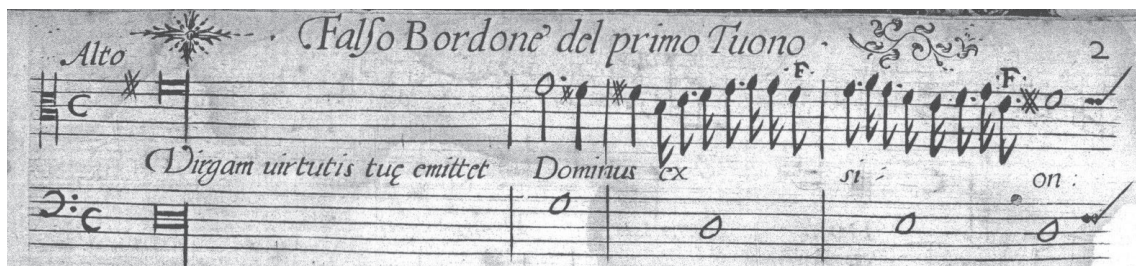 Falso Bordone del primo Tuono · 2
Alto
·F· ·F·
Virgam uirtutis tuę emittet Dominus ex si - on :